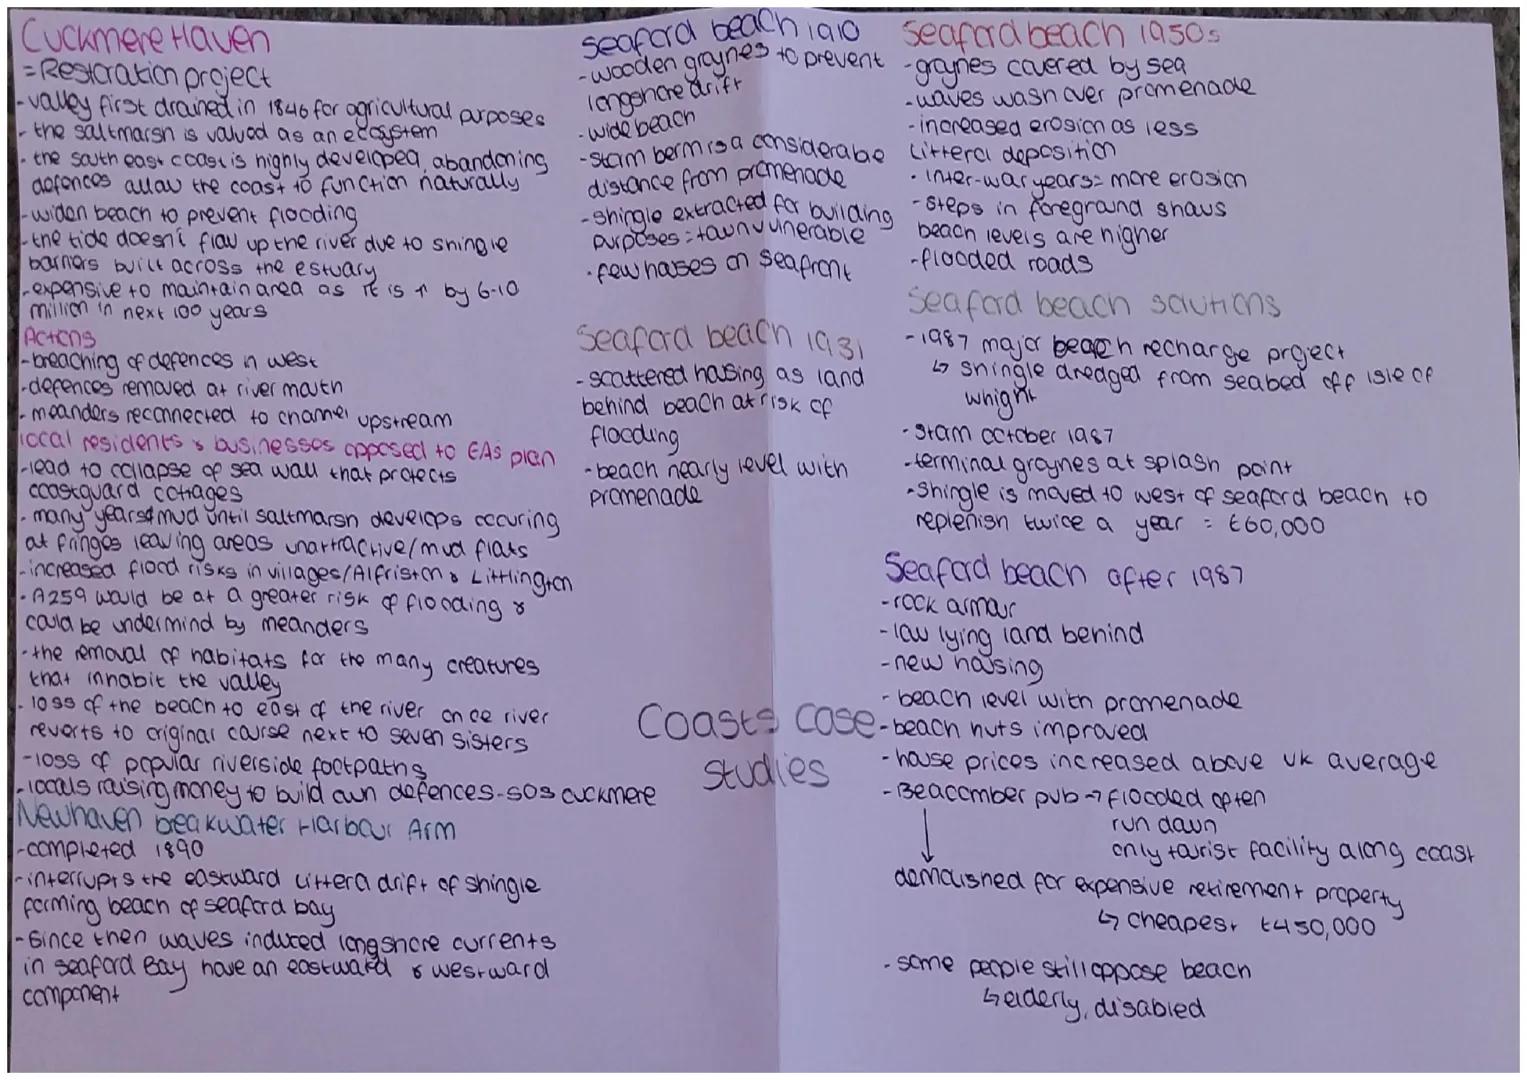 Cuckmere Haven
= Restoration project
- valley first drained in 1846 for agricultural purposes
- the saltmarsh is valued as an ecosystem
- the south east coast is highly developed, abandoning
defences allow the coast to function naturally
- widen beach to prevent flooding
- the tide doesn't flow up the river due to shingle
barriers built across the estuary
- expensive to maintain area as it is ↑ by 6-10
million in next 100 years
Actions
- breaching of defences in west
- defences removed at river mouth
- meanders reconnected to channel upstream
local residents & businesses opposed to EAs plan
- lead to collapse of sea wall that protects
coastguard cottages
- many years of mud until saltmarsh develops occuring
at fringes leaving areas unattractive/mud flats
- increased flood risks in villages/Alfriston & Littlington
- A259 would be at a greater risk of flooding &
could be undermind by meanders
- the removal of habitats for the many creatures
that inhabit the valley
- loss of the beach to east of the river once river
reverts to original course next to seven sisters
- loss of popular riverside footpaths
- locals raising money to build own defences - SOS cuckmere
Newhaven breakwater Harbour Arm
- completed 1890
- interrupts the eastward littera drift of shingle
forming beach of seaford bay
- since then waves induced longshore currents
in seaford Bay have an eastward & westward
component
Seaford beach 1910
- wooden groynes to prevent
longshore drift
- wide beach
- storm berm is a considerable
distance from promenade
- shingle extracted for building
purposes = town vulnerable
- few houses on seafront
Seaford beach 1931
- scattered housing as land
behind beach at risk of
flooding
- beach nearly level with
promenade
Coasts case
studies
Seaford beach 1950s
- groynes covered by sea
- waves wash over promenade
- increased erosion as less
litteral deposition
- inter-war years = more erosion
- steps in foreground shows
beach levels are higher
- flooded roads
Seaford beach solutions
- 1987 major beach recharge project
↳ shingle dredged from seabed off isle of
whight
- storm october 1987
- terminal groynes at splash point
- shingle is moved to west of seaford beach to
replenish twice a year = £60,000
Seaford beach after 1987
- rock armour
- low lying land behind
- new housing
- beach level with promenade
- beach huts improved
- house prices increased above uk average
- Beacomber pub → flooded often
run down
only tourist facility along coast
↓
demolished for expensive retirement property
↳ cheapest £450,000
- some people still oppose beach
↳ elderly, disabled